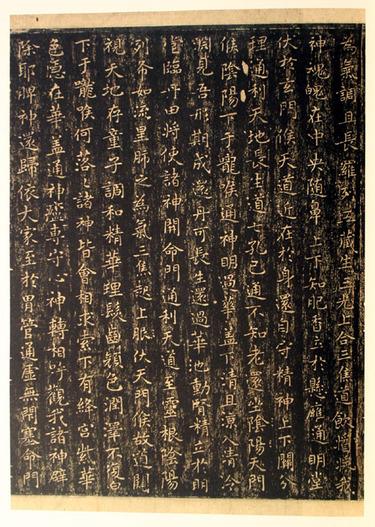 為氣調且長羅列五藏生三光上合三焦道飲醬漿我
神魂魄在中央随鼻上下知肥香立於懸雍通明堂
伏於玄門候天道近在於身還自守精神上下關分
理通利天地長生道七孔已通不知老還坐陰陽天門
候陰陽下于嚨喉通神明過華蓋下清且涼入清泠
淵見吾形期成還丹可長生還過華池動腎精立於明
堂臨丹田將使諸神開命門通利天道至靈根陰陽
列布如流星肺之為氣三焦起上服伏天門候故道闚
視天地存童子調和精華理髮齒顏色潤澤不復白
下于嚨喉何落落諸神皆會相求索下有絳宮紫華
色隱在華蓋通神廬專守心神轉相呼觀我諸神辟
除耶脾神還歸依大家至於胃管通虛無閉塞命門